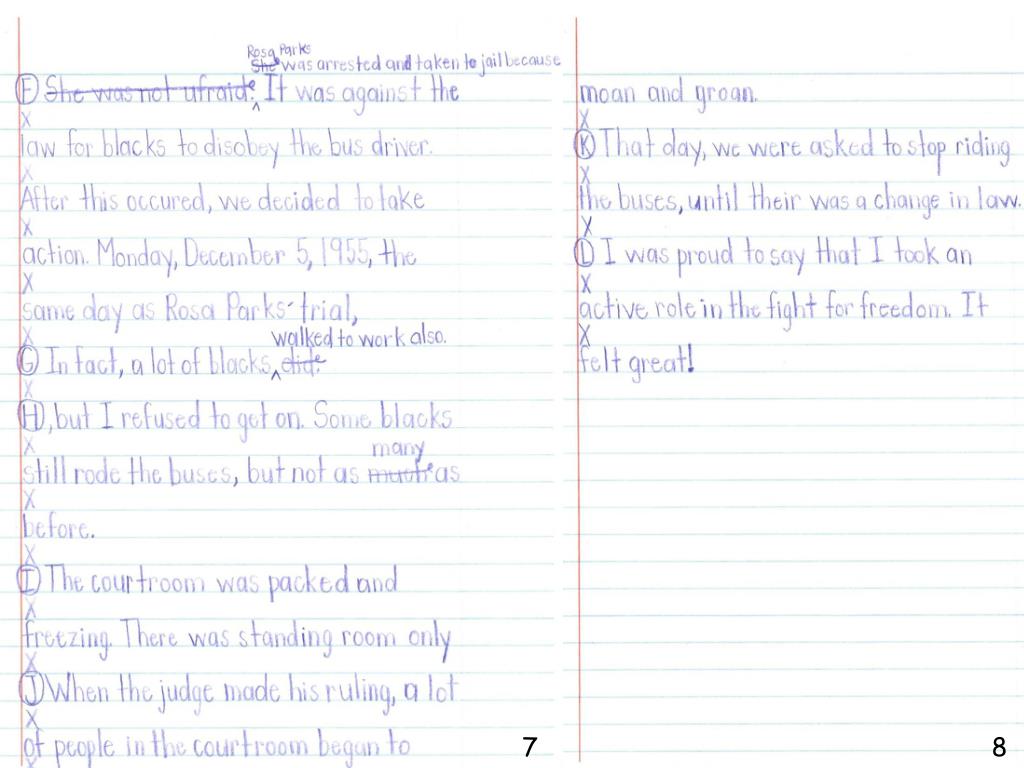 Rosa Parks
She was arrested and taken to jail because
F She was not afraid. It was against the
X
law for blacks to disobey the bus driver.
X
After this occured, we decided to take
X
action. Monday, December 5, 1955, the
X
same day as Rosa Parks' trial,
X
walked to work also.
G In fact, a lot of blacks did.
X
H, but I refused to get on. Some blacks
X
many
still rode the buses, but not as much as
X
before.
X
I The courtroom was packed and
X
freezing. There was standing room only
X
J When the judge made his ruling, a lot
X
of people in the courtroom began to
X
7
moan and groan.
X
K That day, we were asked to stop riding
X
the buses, until their was a change in law.
X
L I was proud to say that I took an
X
active role in the fight for freedom. It
X
felt great!
8